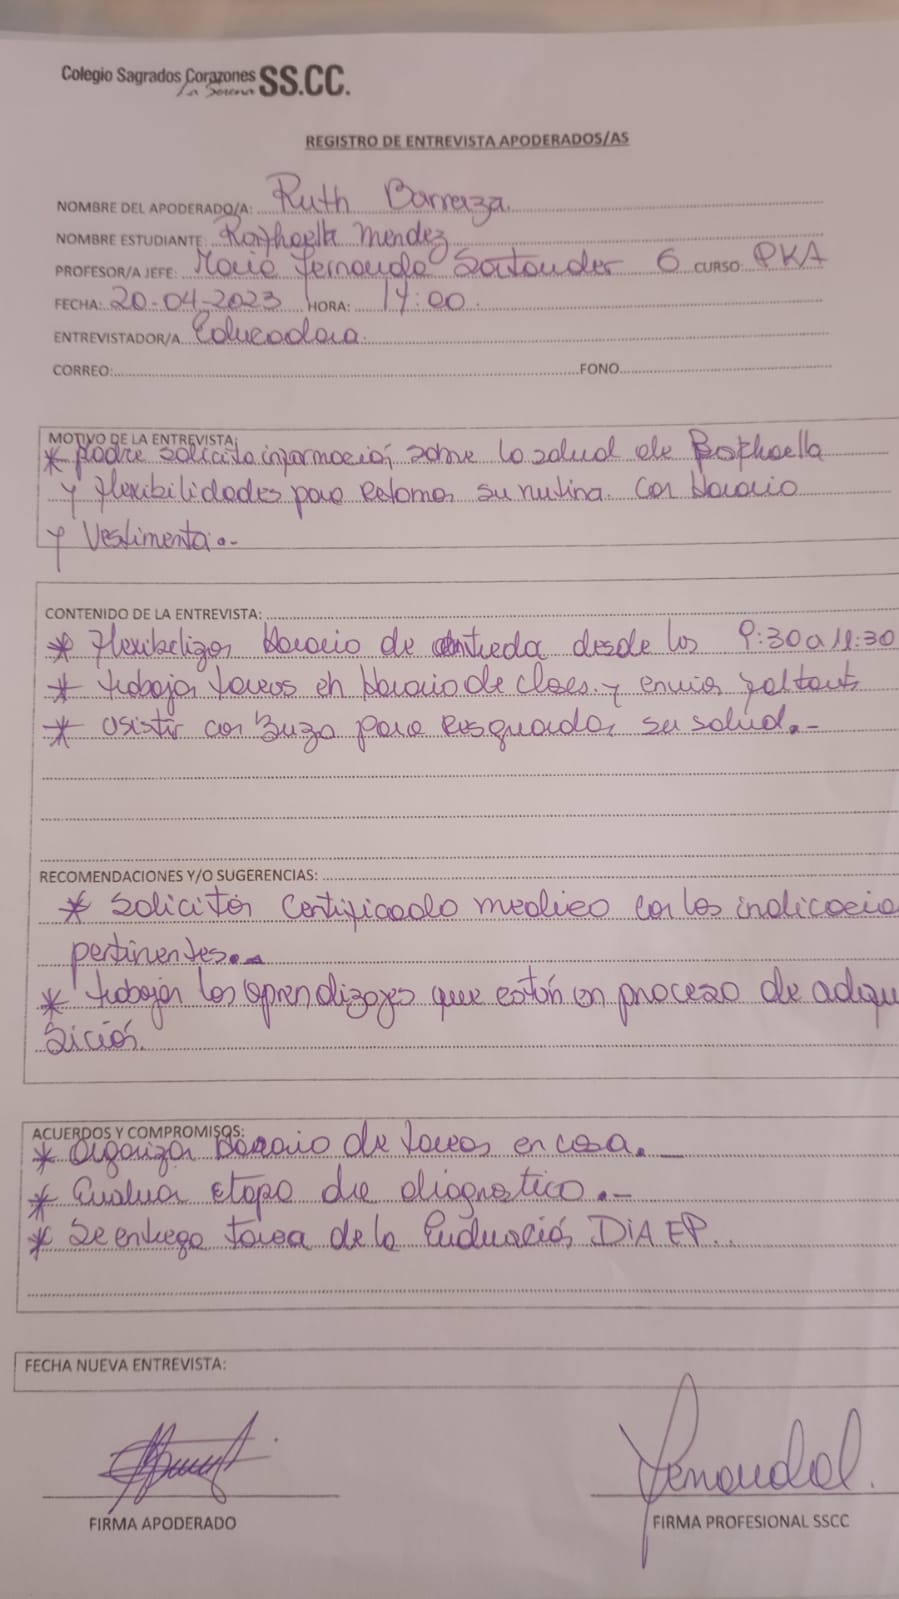 Colegio Sagrados Corazones SS.CC.
La Serena
REGISTRO DE ENTREVISTA APODERADOS/AS
NOMBRE DEL APODERADO/A: Ruth Barraza
NOMBRE ESTUDIANTE: Raphaella Mendez
PROFESOR/A JEFE: Maria Fernanda Santander G CURSO: PKA
FECHA: 20-04-2023 HORA: 17:00
ENTREVISTADOR/A Educadora.
CORREO: FONO
MOTIVO DE LA ENTREVISTA:
* Madre solicita información sobre la salud de Raphaella
y flexibilidades para retomar su rutina con Horario
y Vestimenta.-
CONTENIDO DE LA ENTREVISTA:
* Flexibilizar Horario de entrada desde las 9:30 a 11:30
* trabajar tareas en Horario de clases y enviar
* asistir con Buzo para resguardar su salud.-
RECOMENDACIONES Y/O SUGERENCIAS:
* Solicitar certificado medico con las indicacio
pertinentes.-
* trabajar los aprendizajes que están en proceso de adqui
sición.
ACUERDOS Y COMPROMISOS:
* Organizar Horario de tareas en casa.-
* Evaluar etapa de diagnostico.-
* Se entrega tarea de la Evaluación DIA EP.
FECHA NUEVA ENTREVISTA:
Fernandal.
FIRMA APODERADO
FIRMA PROFESIONAL SSCC